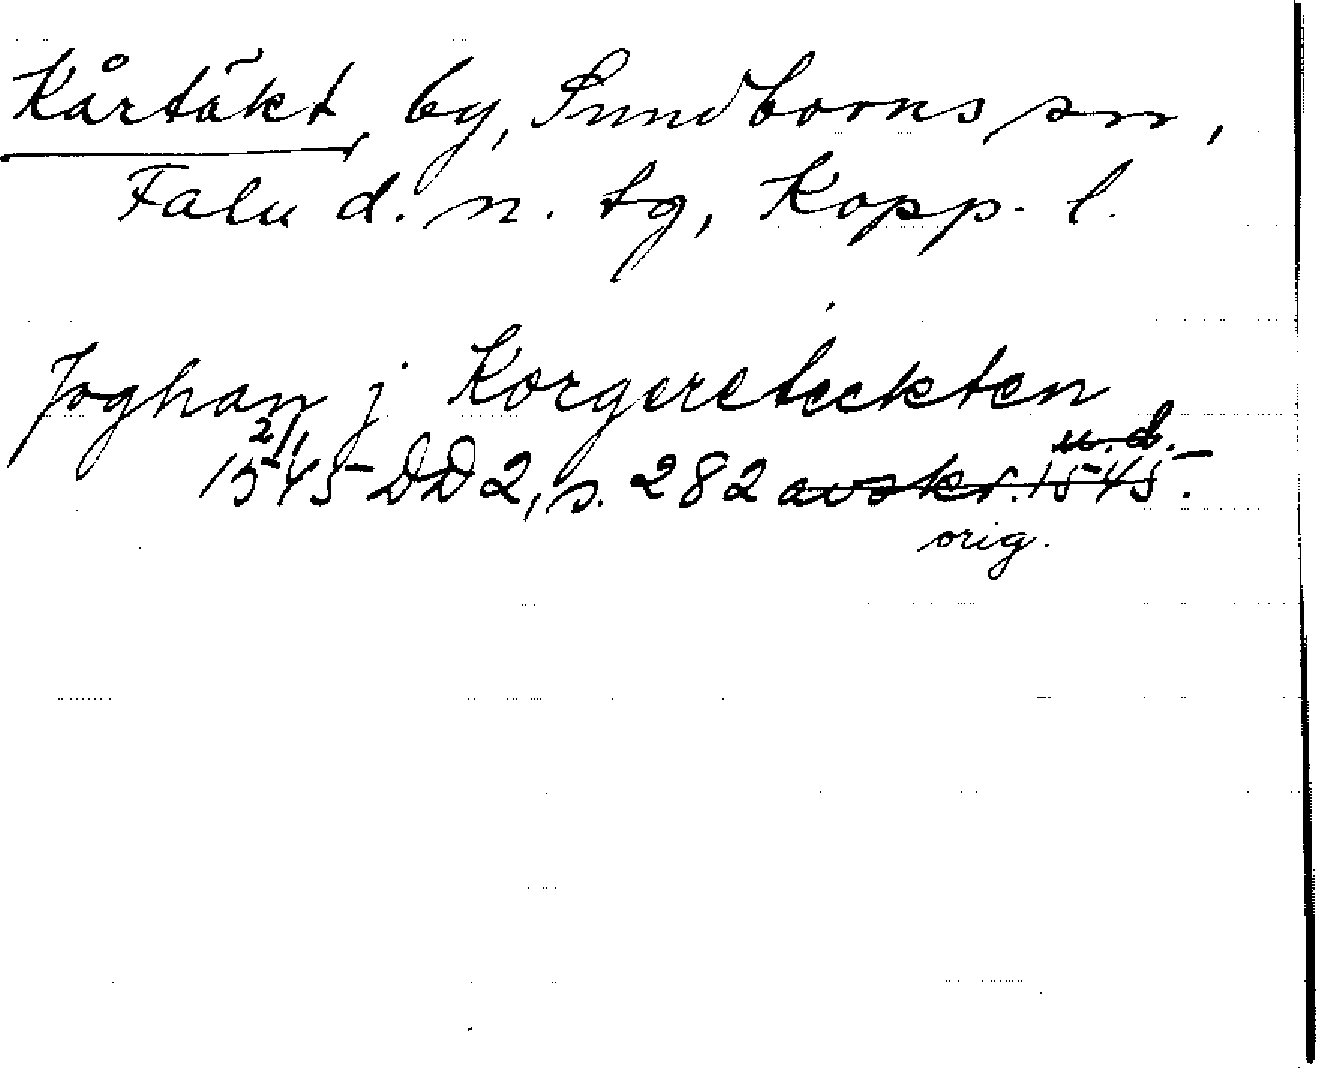 Kårtäkt, by, Sundborns sn,
Falu d. n. tg, Kopp. l.
Joghan j Korgereteckten
2/1 u. d.
1545 DD 2, s. 282 avskr. 1545.
orig.